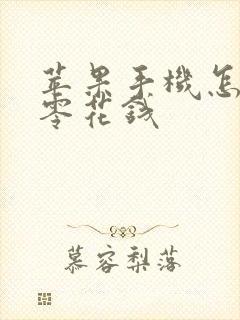 苹果手機怎
零花錢
慕容梨落